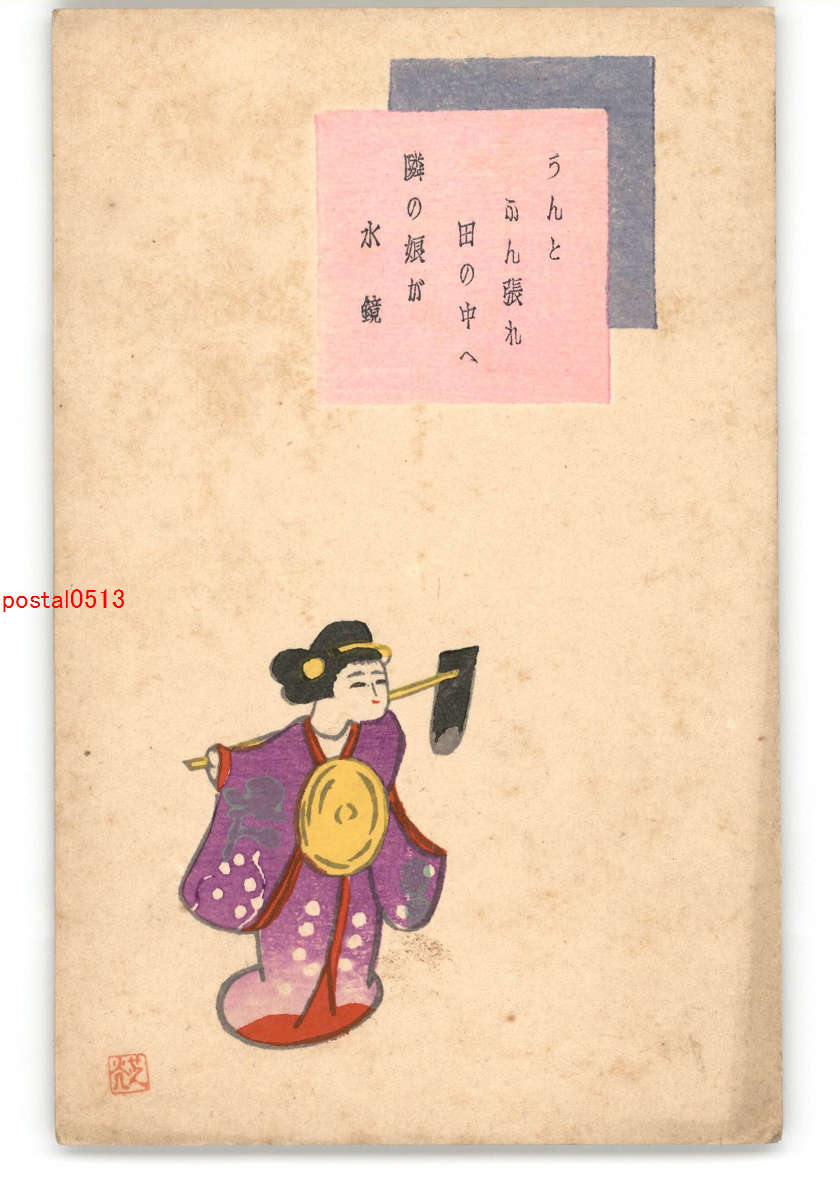 うんと
ふん張れ
田の中へ
隣の娘が
水鏡
postal0513